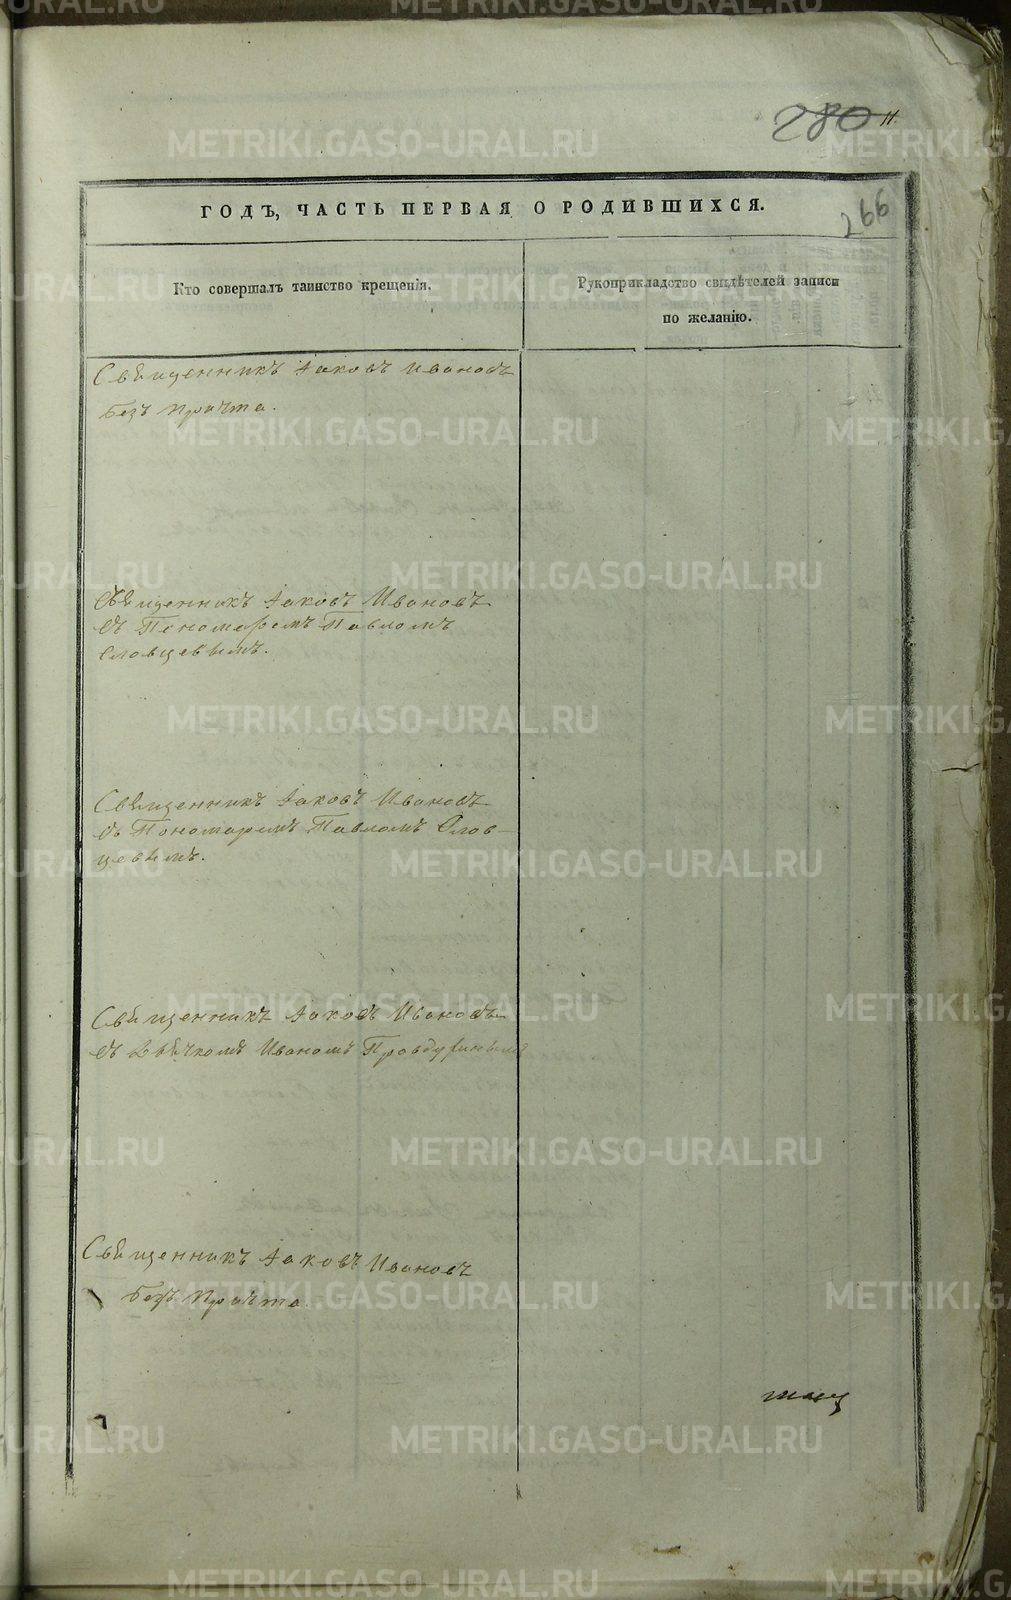 280 11
ГОДЪ, ЧАСТЬ ПЕРВАЯ О РОДИВШИХСЯ.
266
Кто совершалъ таинство крещенія.
Рукоприкладство свидѣтелей записи
по желанію.
Священникъ Іаковъ Ивановъ
безъ причта.
Священникъ Іаковъ Ивановъ
съ Пономаремъ Павломъ
Словцевымъ.
Священникъ Іаковъ Ивановъ
съ Пономаремъ Павломъ Слов-
цевымъ.
Священникъ Іаковъ Ивановъ
съ Дьячкомъ Иваномъ Правдухинымъ
Священникъ Іаковъ Ивановъ
безъ причта.
METRIKI.GASO-URAL.RU